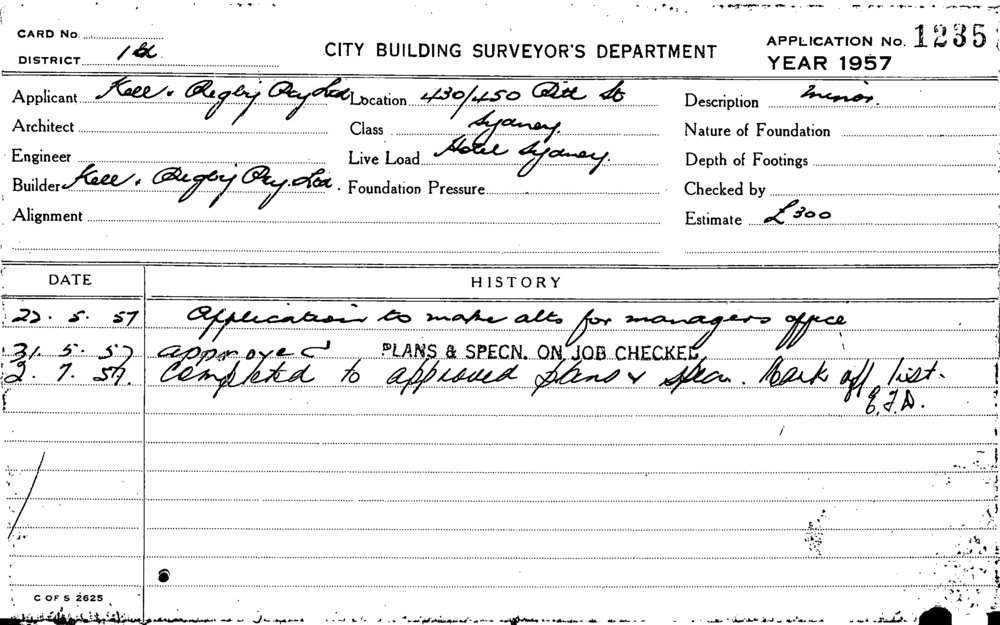 CARD No.
DISTRICT 1st
CITY BUILDING SURVEYOR'S DEPARTMENT
APPLICATION No. 1235
YEAR 1957
Applicant Kell & Rigby Pty Ltd
Location 430/450 Pitt St
Description minor.
Architect
Class Sydney.
Nature of Foundation
Engineer
Live Load Hotel Sydney.
Depth of Footings
Builder Kell & Rigby Pty. Ltd.
Foundation Pressure
Checked by
Alignment
Estimate £300
DATE HISTORY
22. 5. 57 Application to make alts for managers office
31. 5. 57 approved PLANS & SPECN. ON JOB CHECKED
2. 7. 57. Completed to approved plans & specn. Mark off list.
E.J.D.
C OF S 2625